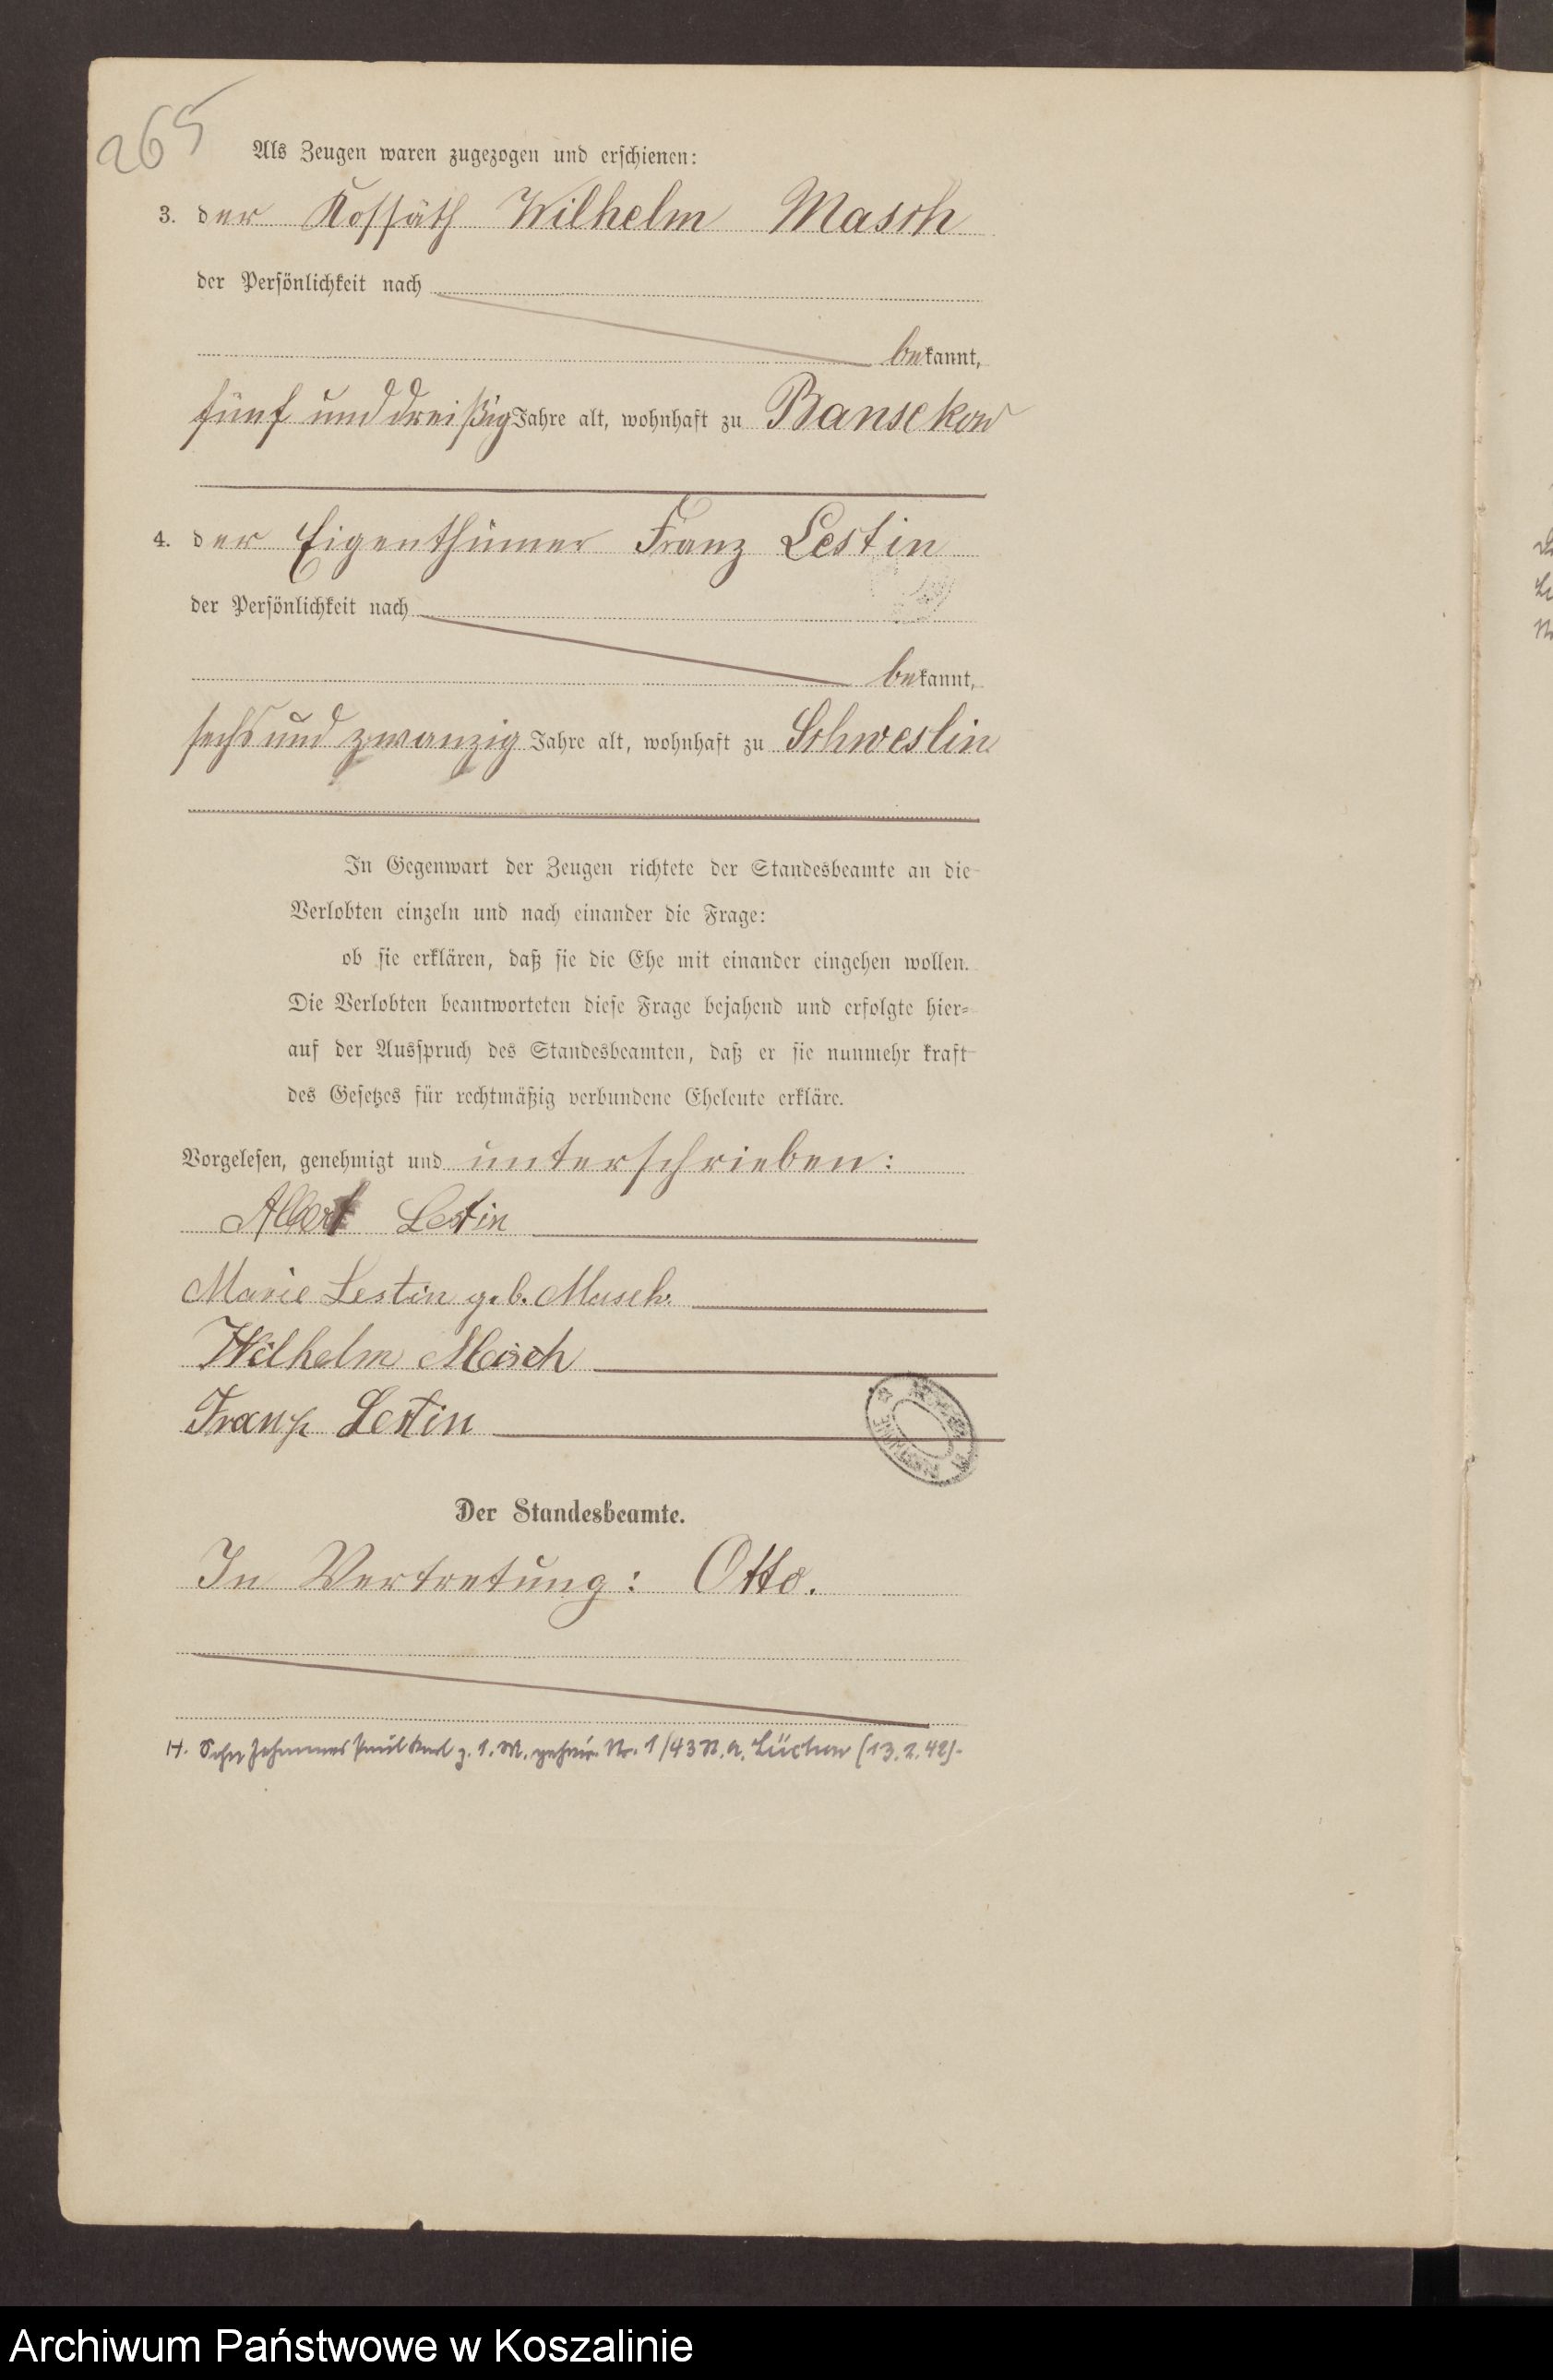 265
Als Zeugen waren zugezogen und erschienen:
3. der Kossäth Wilhelm Masch
der Persönlichkeit nach
bekannt,
fünf und dreißig Jahre alt, wohnhaft zu Bansekow
4. der Eigenthümer Franz Lestin
der Persönlichkeit nach
bekannt,
sechs und zwanzig Jahre alt, wohnhaft zu Schweslin
In Gegenwart der Zeugen richtete der Standesbeamte an die
Verlobten einzeln und nach einander die Frage:
ob sie erklären, daß sie die Ehe mit einander eingehen wollen.
Die Verlobten beantworteten diese Frage bejahend und erfolgte hier-
auf der Ausspruch des Standesbeamten, daß er sie nunmehr kraft
des Gesetzes für rechtmäßig verbundene Eheleute erkläre.
Vorgelesen, genehmigt und unterschrieben:
Albert Lestin
Marie Lestin geb. Masch.
Wilhelm Masch
Franz Lestin
Der Standesbeamte.
In Vertretung: Otto.
H. Sohn Johannes Paul Karl z. 1. M. geheir. Nr. 1/43 Lüchow (13.2.42).
Archiwum Państwowe w Koszalinie